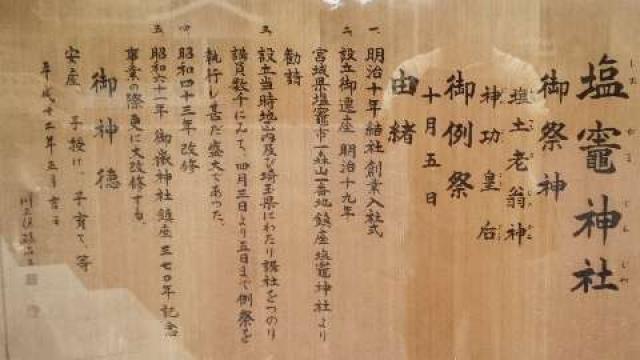 塩竈神社
しおがまじんじゃ
御祭神
塩土老翁神
神功皇后
御例祭
十月五日
由緒
一、明治十年結社創業入社式
二、設立御遷座 明治十九年
宮城県塩竈市一森山一番地鎮座塩竈神社より
勧請
三、設立当時地区内及び埼玉県にわたり講社をつのり
講員数千にみて、四月三日より五日まで例祭を
執行し甚だ盛大であった。
四、昭和四十三年改修
五、昭和六十一年 御嶽神社鎮座三七〇年記念
事業の際更に大改修する。
御神徳
安産 子授け、子育て、等
平成十二年五月吉日